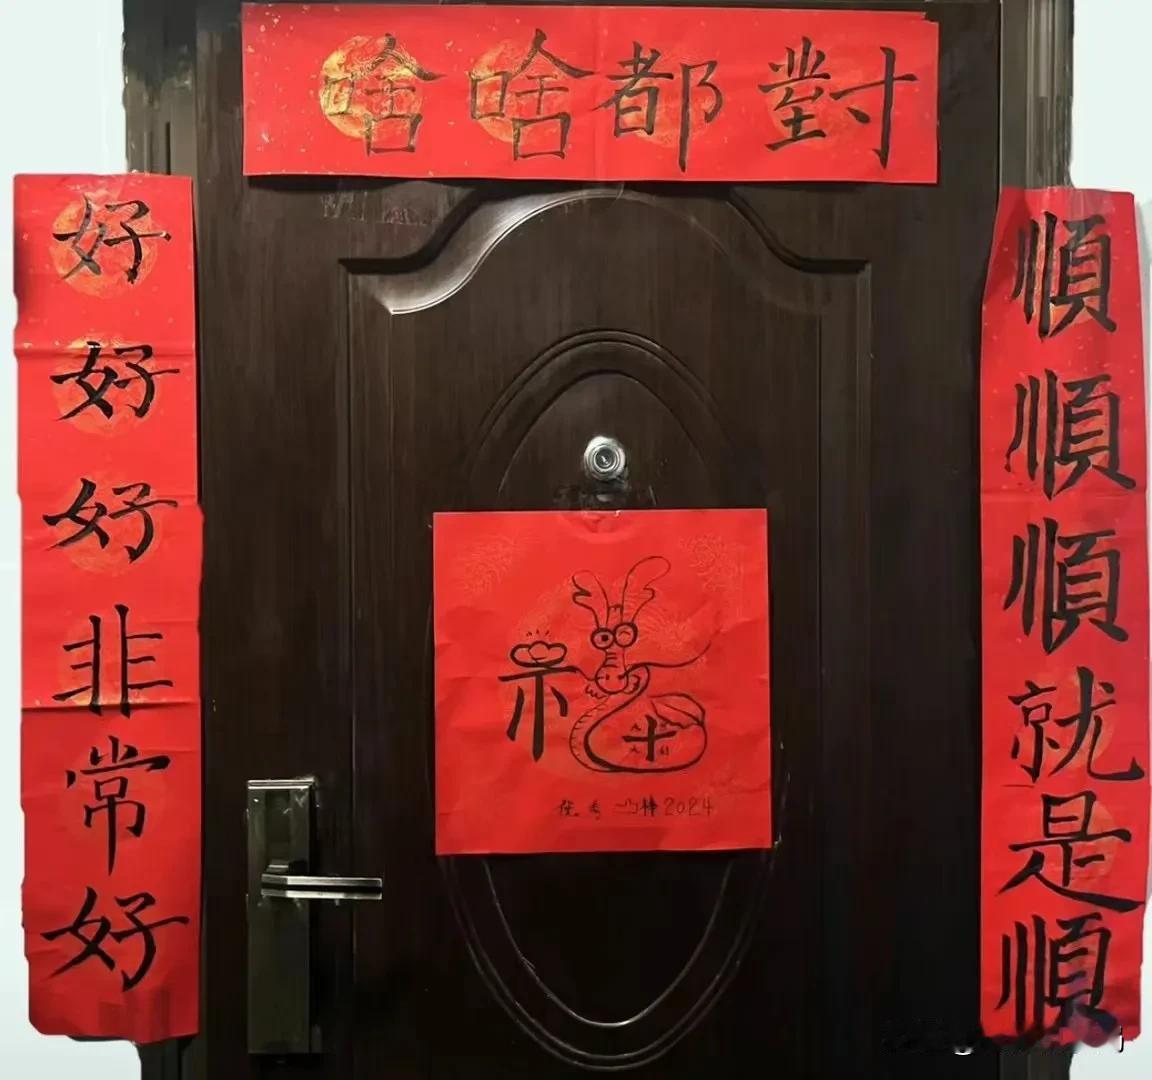 啥啥都對
好好好非常好
順順順就是順
2024